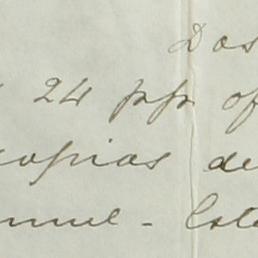 Dos
24 ppr of
copias de
nnuel - Esta